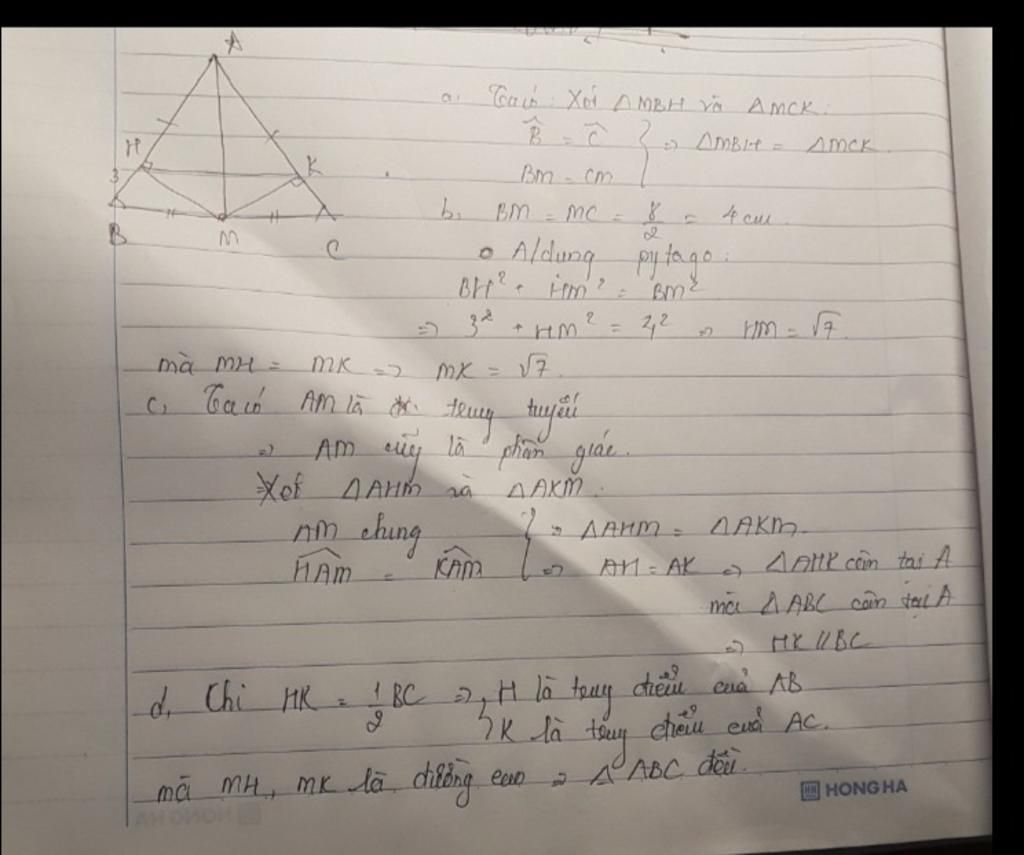 A
H
K
3
B
M
C
a, Ta có: Xét ΔMBH và ΔMCK:
B̂ = Ĉ
BM = CM
} => ΔMBH = ΔMCK
b, BM = MC = 8/2 = 4 cm
A/dung pytago:
BH² + HM² = BM²
=> 3² + HM² = 4² => HM = √7
mà MH = MK => MK = √7.
c, Ta có AM là trung tuyến
=> AM cũg là phân giác.
Xét ΔAHM và ΔAKM.
AM chung } => ΔAHM = ΔAKM.
HAM = KAM => AH = AK => ΔAHK cân tại A
mà ΔABC cân tại A
=> HK // BC
d, Chi HK = 1/2 BC => { H là trug điểm của AB
K là trug điểm của AC.
mà MH, MK là đường cao => Δ ABC đều.
HH HONG HA